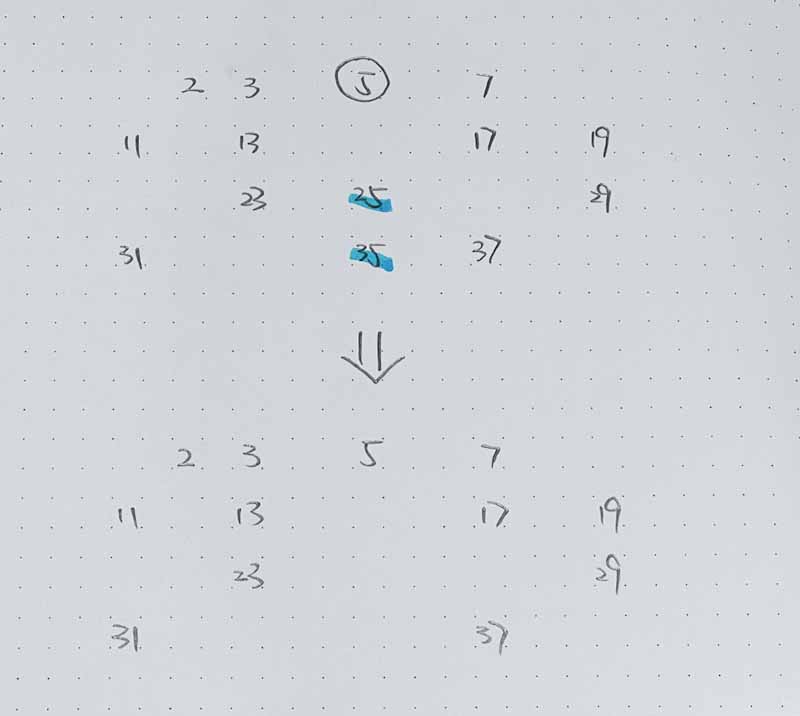 2 3 5 7
11 13 17 19
23 25 29
31 35 37
⇓
2 3 5 7
11 13 17 19
23 29
31 37